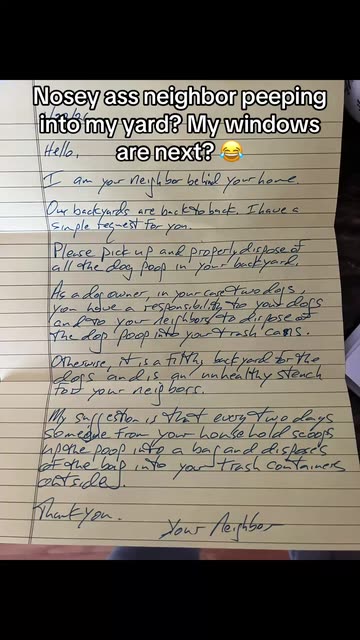 Nosey ass neighbor peeping
into my yard? My windows
are next? 😂
Hello,
I am your neighbor behind your home.
Our backyards are back to back. I have a
simple request for you.
Please pick up and properly dispose of
all the dog poop in your backyard.
As a dog owner, in your case two dogs,
you have a responsibility to your dogs
and to your neighbors to dispose of
the dog poop into your trash cans.
Otherwise, it is a filthy backyard for the
dogs and is an unhealthy stench
for your neighbors.
My suggestion is that every two days
someone from your household scoops
up the poop into a bag and disposes
of the bag into your trash containers
outside.
Thank you.
Your Neighbor